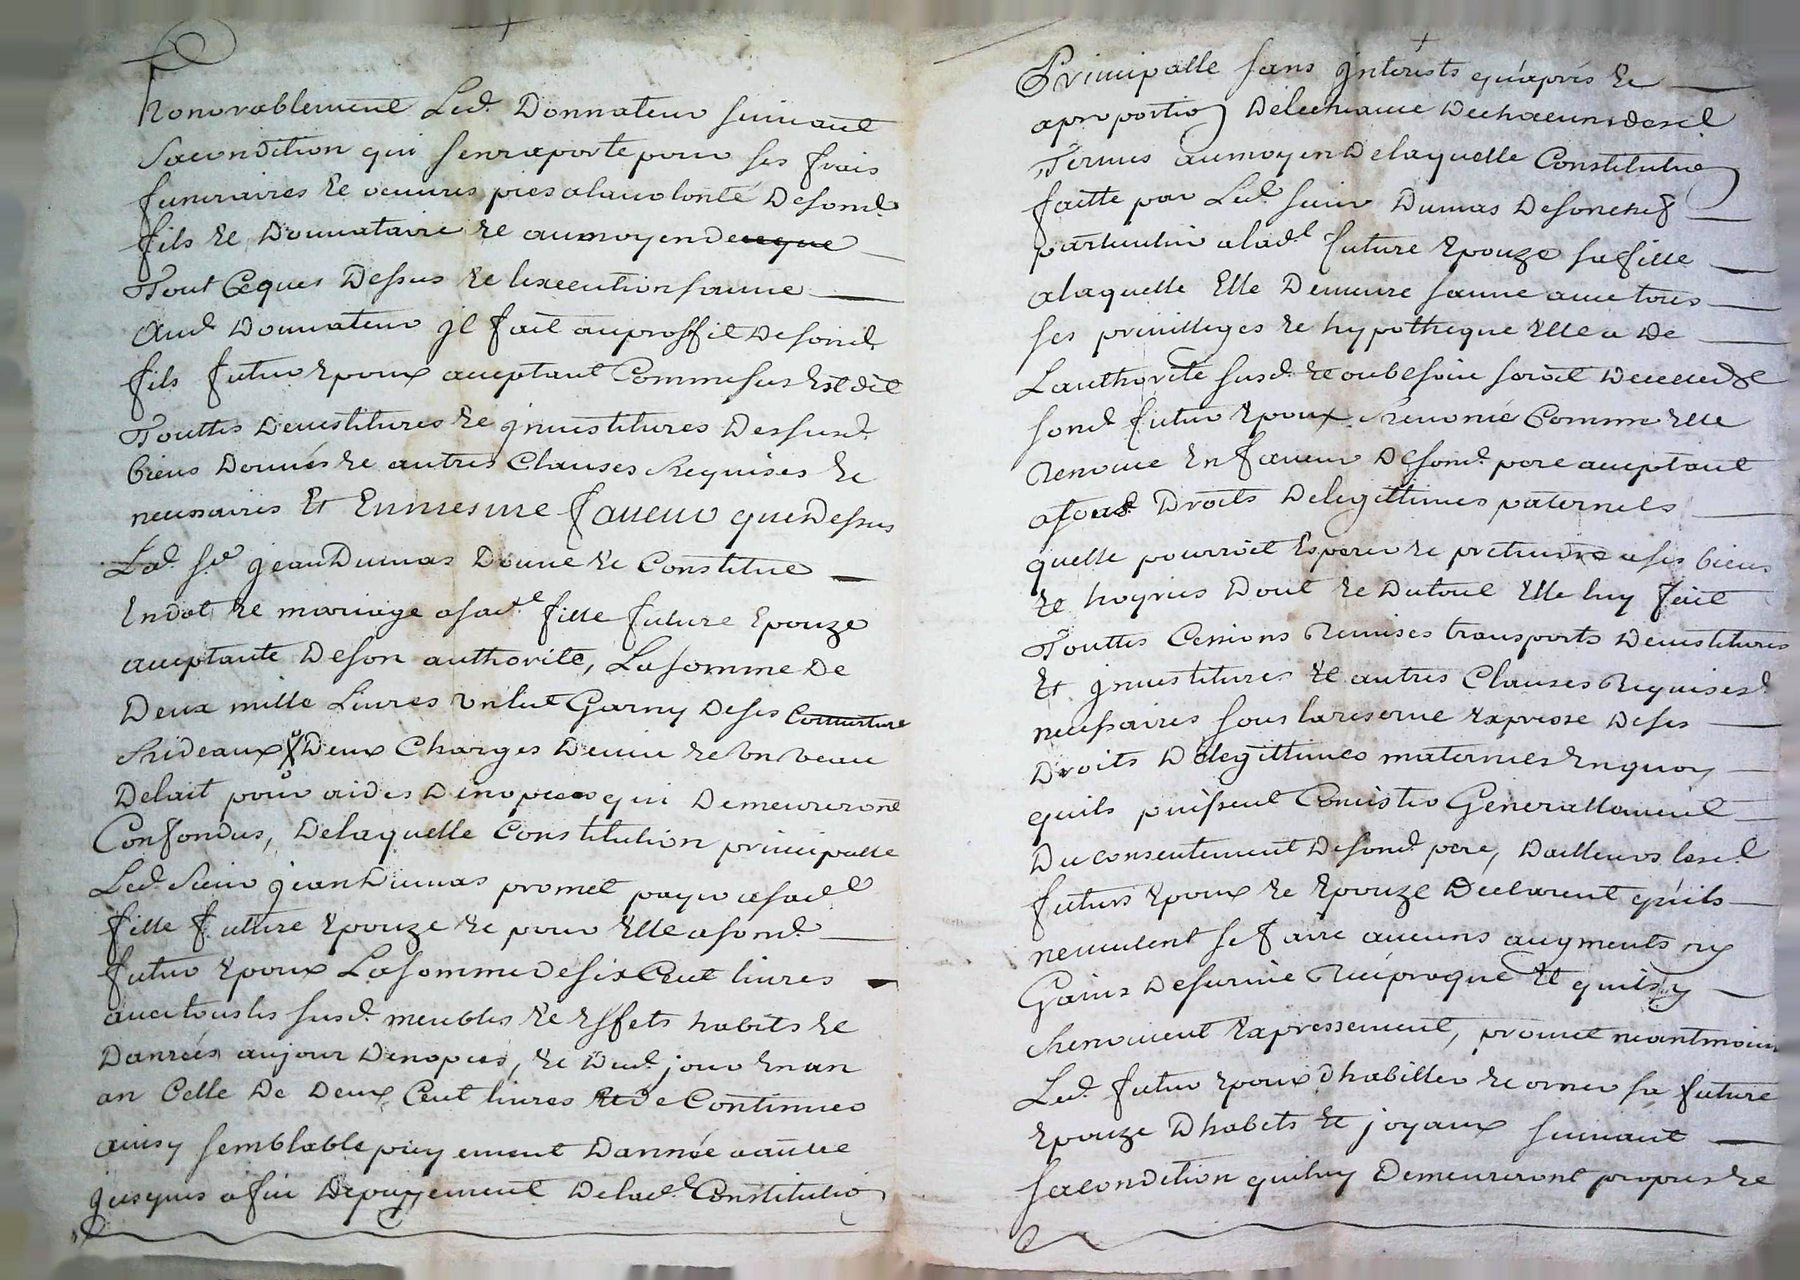 honorablement Led. Donnateur suivant
sa condition qui sen raporte pour ses frais
funeraires et oeuvres pies a la volonté De sond.
fils et Donnataire et au moyen de ce que
Tout Ce que Dessus et lexecution sauve
Aud. Donnateur jl fait au proffit De sond.
fils futur Epoux acceptant Comme sus Est dit
Touttes Devestitures et jnvestitures Des susd.
biens Donnés et autres Clauses Requises et
necessaires Et En mesme faveur que Dessus
Led. sr. jean Dumas Donne et Constitue
En dot et mariage a sad.e fille future Epouze
acceptante De son authorité, La somme De
Deux mille Livres un lict Garny De ses Couverture
Rideaux Deux Charges De vin et un veau
De lait pour aides De nopces qui Demeureront
Confondus, De laquelle Constitution principalle
Led. sieur jean Dumas promet payer a sad.e
fille future Epouze et pour Elle a sond.
futur Epoux La somme de six Cent livres
avec tous les susd. meubles et Effets habits et
Danrées au jour De nopces, et Dud. jour En un
an Celle De Deux Cent livres et de Continuer
ainsy semblable payement Dannée a autre
jusques a fin De payement De lad.e Constitution
Principalle sans jnterists qu'aprés et
a proportion De lecheance De chacun desd.
Termes au moyen De laquelle Constitution
faitte par Led. sieur Dumas De son chef
particulier a lad.e future Epouze sa fille
a laquelle Elle Demeure sauve avec tous
ses privilleges et hypotheque Elle a De
Lauthorité susd. et ou besoin seroit De celle De
sond. futur Epoux Renoncé Comme Elle
Renonce En faveur De sond. pere acceptant
a Droits De legittimes paternels
quelle pourroit Esperer et pretendre a ses biens
et hoyries Dont et Du tout Elle luy fait
Touttes Cessions Remises transports Devestitures
Et jnvestitures et autres Clauses Requises et
necessaires sous la reserve Expresse De ses
Droits De legittimes maternels En quoy
quils puissent Consister Generallement
Du consentement De sond. pere, Dailleurs lesd.
futurs Epoux et Epouze Declarent qu'ils
ne veulent se faire aucuns augments ny
Gains De survie Reciproque Et quils y
Renoncent Expressement, promet neantmoins
Led. futur Epoux D'habiller et orner sa future
Epouze D'habits et joyaux suivant
sa condition qui luy Demeureront propres et